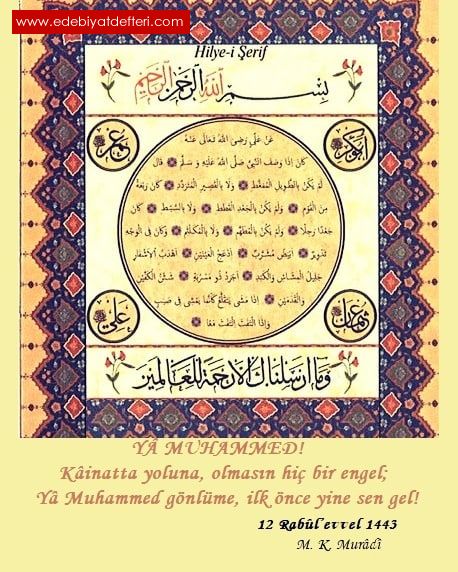 www.edebiyatdefteri.com
Hilye-i Şerif
بِسْمِ اللهِ الرَّحْمٰنِ الرَّحِيمِ
ابوبكر
عمر
عَنْ عَلِىٍّ رَضِىَ اللهُ تَعَالَى عَنْهُ
كَانَ اِذَا وَصَفَ النَّبِىَّ صَلَّى اللهُ عَلَيْهِ وَسَلَّمَ قَالَ
لَمْ يَكُنْ بِالطَّوِيلِ الْمُمَّغِطِ وَلَا بِالْقَصِيرِ الْمُتَرَدِّدِ كَانَ رَبْعَةً
مِنَ الْقَوْمِ وَلَمْ يَكُنْ بِالْجَعْدِ الْقَطَطِ وَلَا بِالسَّبْطِ كَانَ
جَعْدًا رَجِلًا وَلَمْ يَكُنْ بِالْمُطَهَّمِ وَلَا بِالْمُكَلْثَمِ وَكَانَ فِى الْوَجْهِ
تَدْوِيرٌ اَبْيَضُ مُشْرَبٌ اَدْعَجُ الْعَيْنَيْنِ اَهْدَبُ الْاَشْفَارِ
جَلِيلُ الْمُشَاشِ وَالْكَتَدِ اَجْرَدُ ذُو مَسْرُبَةٍ شَثْنُ الْكَفَّيْنِ
وَالْقَدَمَيْنِ اِذَا مَشَى يَتَقَلَّعُ كَاَنَّمَا يَمْشِى فِى صَبَبٍ
وَاِذَا الْتَفَتَ الْتَفَتَ مَعًا
عثمان
على
وَمَا اَرْسَلْنَاكَ اِلَّا رَحْمَةً لِلْعَالَمِينَ
YÂ MUHAMMED!
Kâinatta yoluna, olmasın hiç bir engel;
Yâ Muhammed gönlüme, ilk önce yine sen gel!
12 Rabûl'evvel 1443
M. K. Murâdî